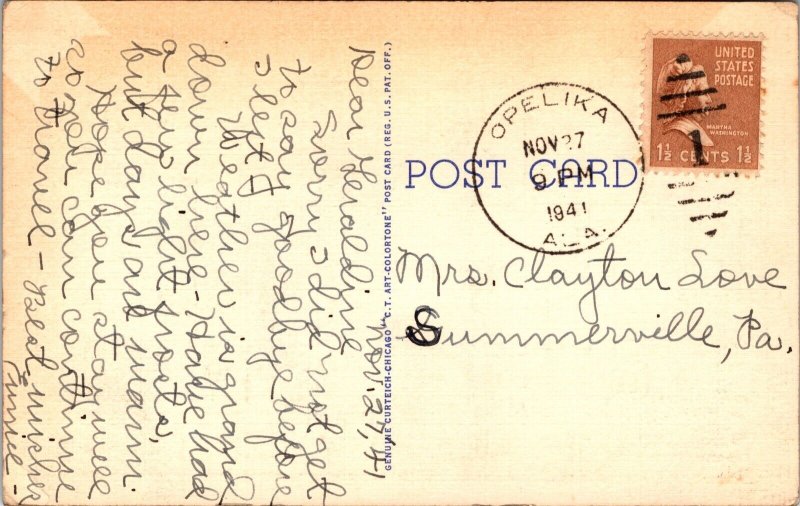 Nov. 27, '41
Dear Geraldine
Sorry I did not get
to say goodbye before
I left.
Weather is grand
down here - Have had
a few light frosts,
but days are warm.
Hope you stay well
so you can continue
to travel - Best wishes
GENUINE CURTEICH-CHICAGO "C.T. ART-COLORTONE" POST CARD (REG. U.S. PAT. OFF.)
POST CARD
OPELIKA
NOV 27
9 PM
1941
ALA.
1
UNITED
STATES
POSTAGE
MARTHA
WASHINGTON
1½ CENTS 1½
Mrs. Clayton Love
Summerville, Pa.